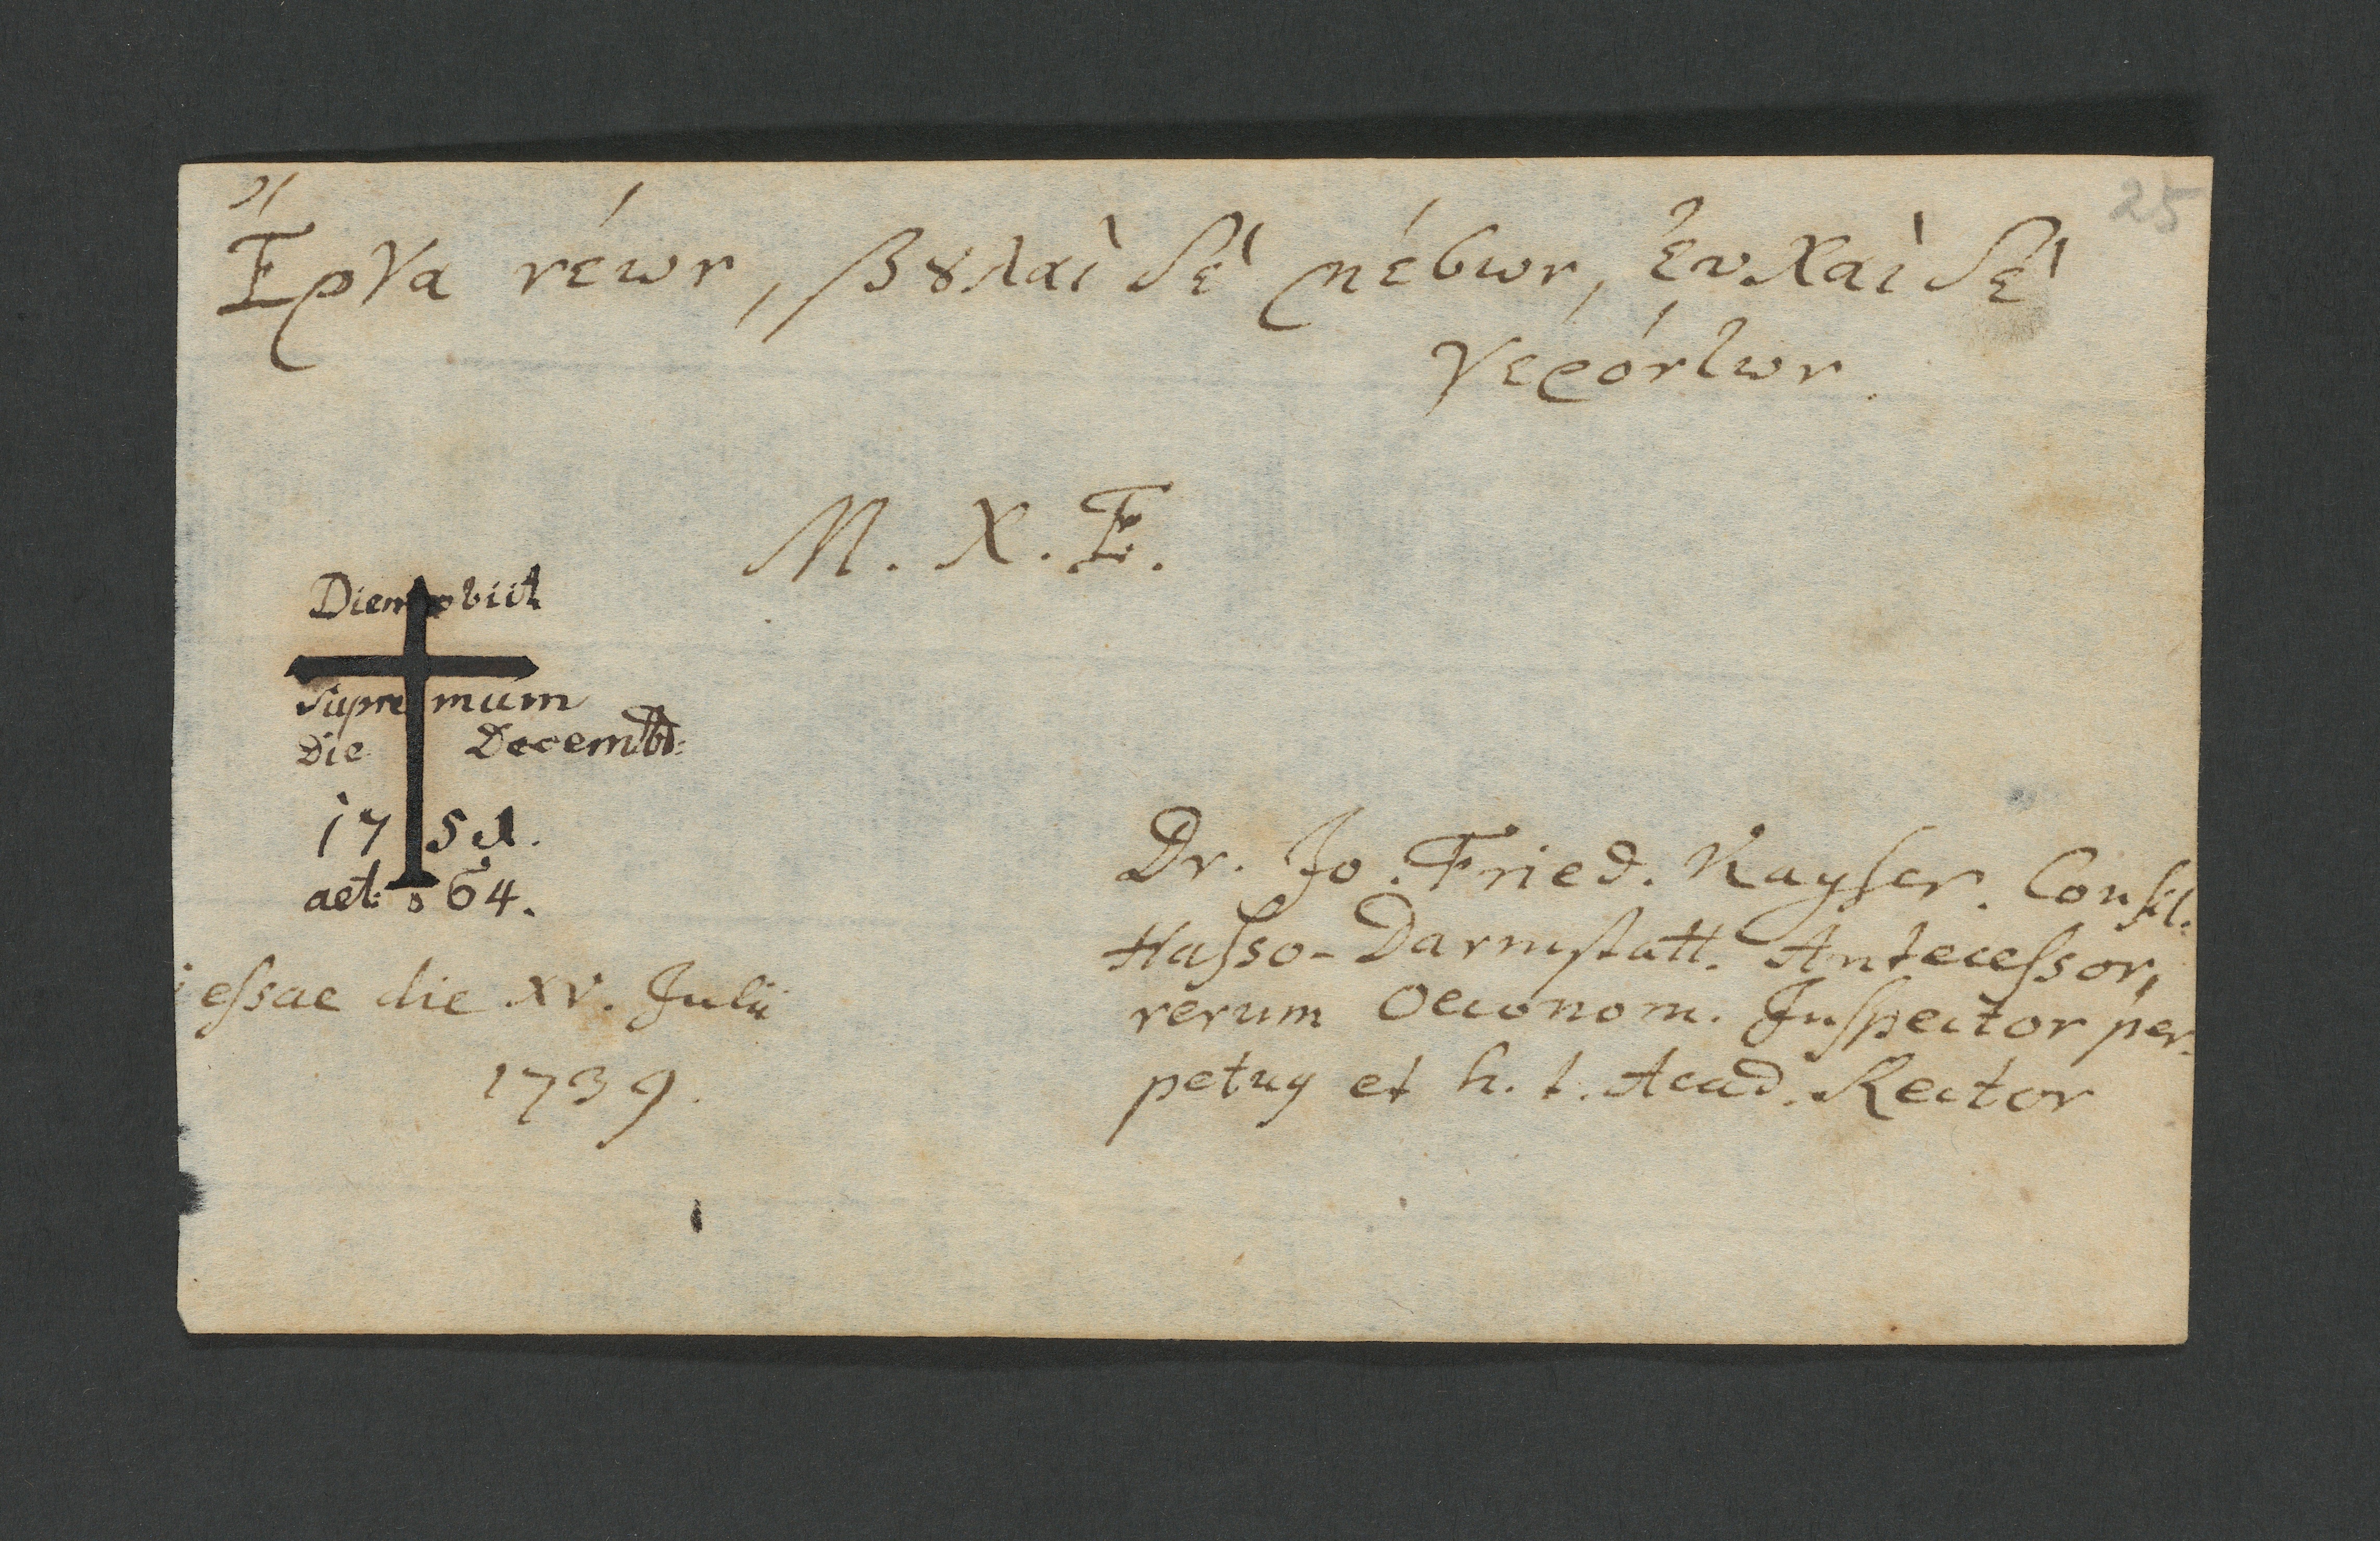 25
Ἔργα νέων, βȣλαὶ δὲ μέσων, ἐυχαὶ δὲ
γερόντων.
M. X. E.
Diem obiit
supremum
Die Decembr:
1751.
aet: 64.
iessae die XV. Julii
1739.
Dr. Jo. Fried. Kayser. Consil.
Hasso-Darmstatt. Antecessor,
rerum Oeconom. Inspector per-
petuy et h. t. Acad. Rector